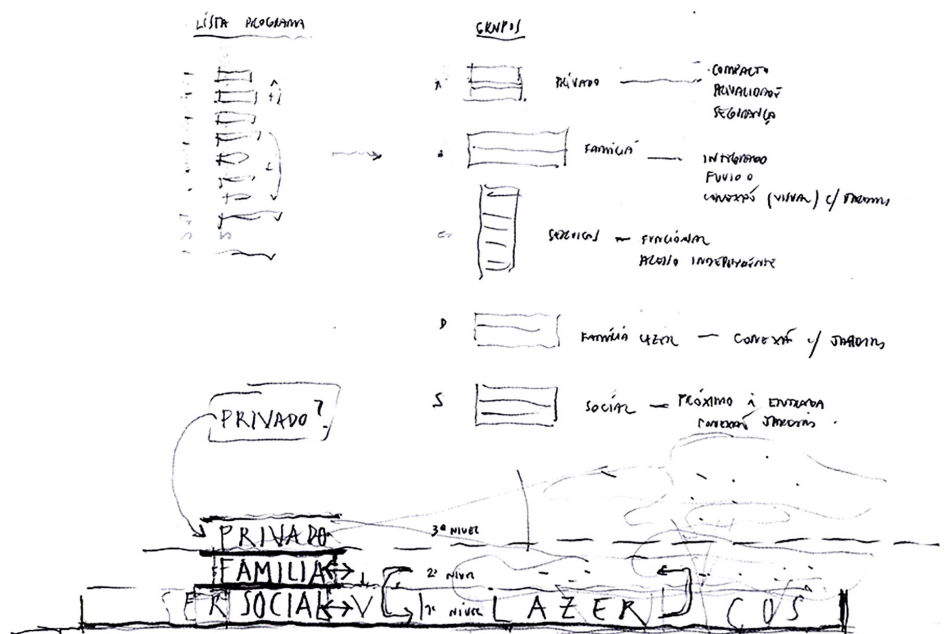 LISTA PROGRAMA
GRUPOS
A PRIVADO — COMPACTO
PRIVALIDADE
SEGURANÇA
FAMILIÁ — INTEGRADO
FUVIDO
CONEXÃO (VISUAL) c/ JARDINS
SERVIÇOS — FUNCIONAL
ACESSO INDEPENDENTE
D FAMÍLIA LAZER — CONEXÃ c/ JARDINS
S SOCIAL — PRÓXIMO À ENTRADA
CONEXÃO JARDINS
PRIVADO?
PRIVADO 3º NIVEL
FAMILIA 2º NIVEL
SER SOCIAL V 1º NIVEL LAZER COS